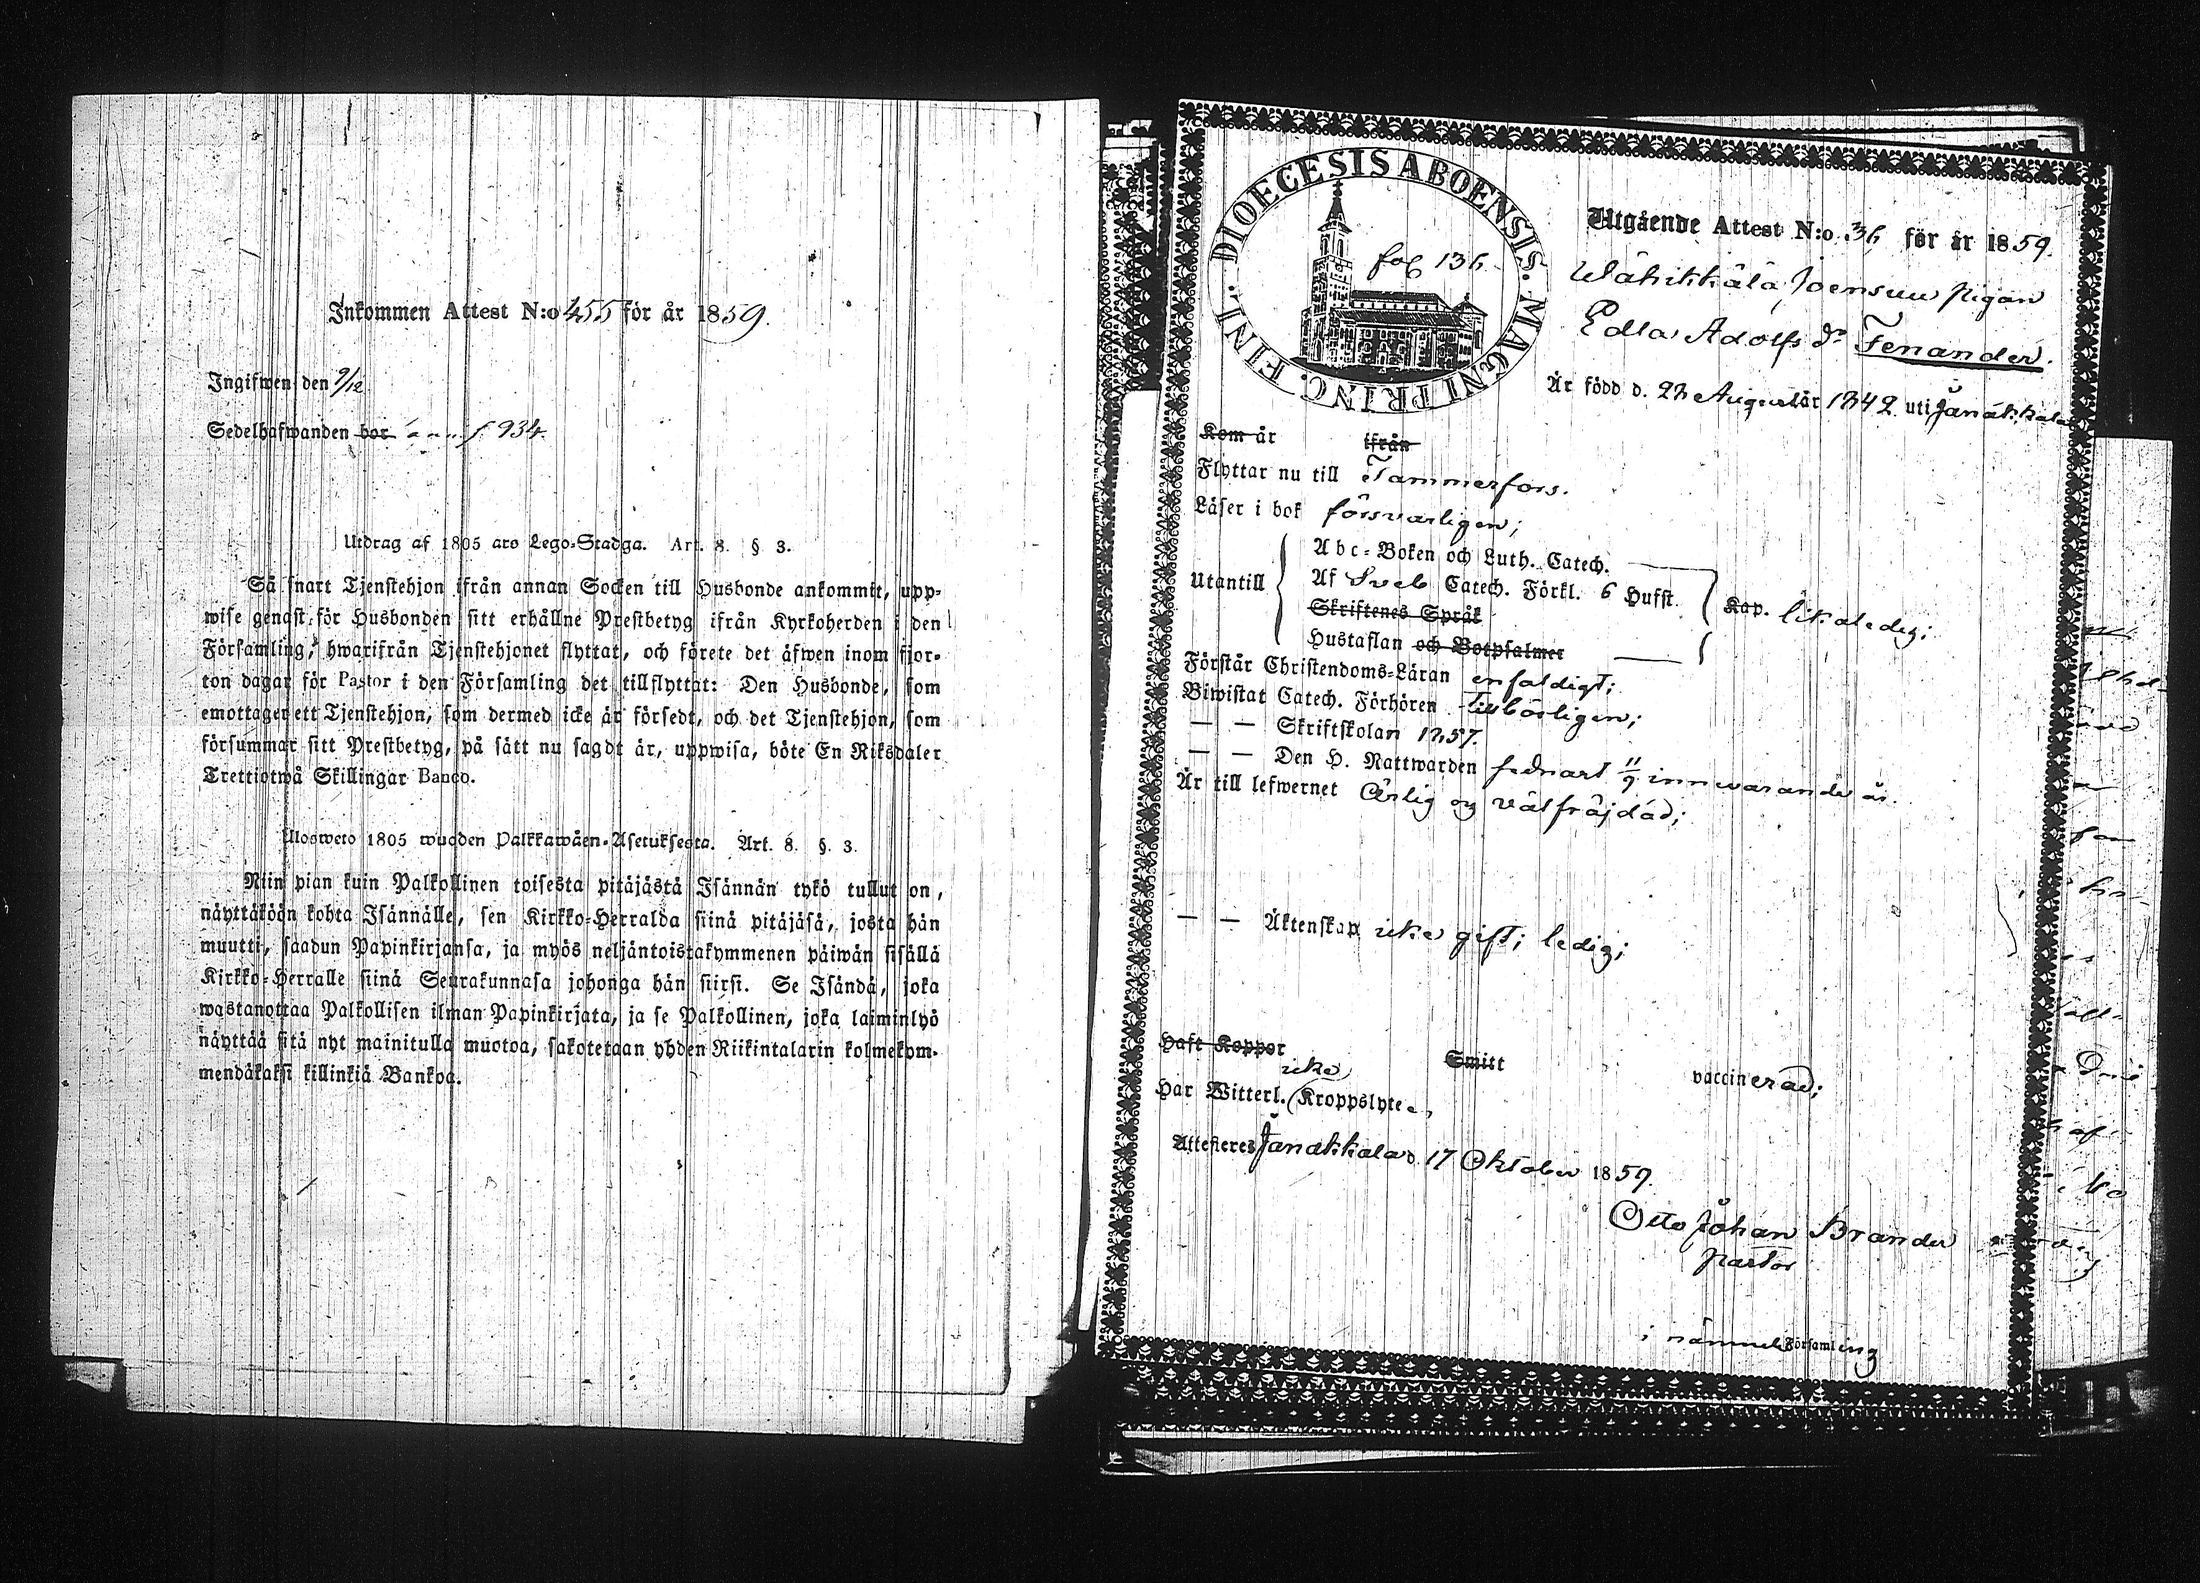 Inkommen Attest N:o 455 för år 1859.
Ingifwen den 9/12
Sedelhafwanden bor f 934.
Utdrag af 1805 års Lego-Stadga. Art. 8. § 3.
Så snart Tjenstehjon ifrån annan Socken till Husbonde ankommit, upp-
wise genast för Husbonden sitt erhållne Prestbetyg ifrån Kyrkoherden i den
Församling, hwarifrån Tjenstehjonet flyttat, och förete det äfwen inom fjor-
ton dagar för Pastor i den Församling det tillflyttat: Den Husbonde, som
emottager ett Tjenstehjon, som dermed icke är försedt, och det Tjenstehjon, som
försummar sitt Prestbetyg, på sätt nu sagdt är, uppwisa, böte En Riksdaler
Trettiotwå Skillingar Banco.
Ulosweto 1805 wuoden Palkkawäen-Asetuksesta. Art. 8. §. 3.
Niin pian kuin Palkollinen toisesta pitäjästä Isännän tykö tullut on,
näyttäköön kohta Isännälle, sen Kirkko-Herralda siinä pitäjäsä, josta hän
muutti, saadun Papinkirjansa, ja myös neljäntoistakymmenen päiwän sisällä
Kirkko-Herralle siinä Seurakunnasa johonga hän siirsi. Se Isändä, joka
wastanottaa Palkollisen ilman Papinkirjata, ja se Palkollinen, joka laiminlyö
näyttää sitä nyt mainitulla muotoa, sakotetaan yhden Riikintalarin kolmekym-
mendäkaksi killinkiä Bankoa.
DIOECESIS ABOENSIS. MAGNI PRINC. FINL.
fol 136.
Utgående Attest N:o 36 för år 1859.
Wähikkälä Joensuu pigan
Edla Adolfs dr Fenander.
Är född d. 28 Augusti år 1842 uti Janakkala
Kom år ifrån
Flyttar nu till Tammerfors.
Läser i bok försvarligen;
Utantill
Abc-Boken och Luth. Catech.
Af Sveb Catech. Förkl. 6 Hufst.
Kap. likaledes;
Skriftenes Språk
Hustaflan och Botpsalmer
Förstår Christendoms-Läran enfaldigt;
Biwistat Catech. Förhören tillbörligen;
— — Skriftskolan 1857.
— — Den H. Nattwarden sednast 11/9 innevarande år.
Är till lefwernet Ärlig og välfräjdad;
— — Äktenskap icke gift; ledig;
Haft Koppor Smitt vaccinerad;
icke
Har Witterl. Kroppslyte,
Attesteres Janakkala d. 17 Oktober 1859.
Otto Johan Brander
pastor
i nämnde Församling